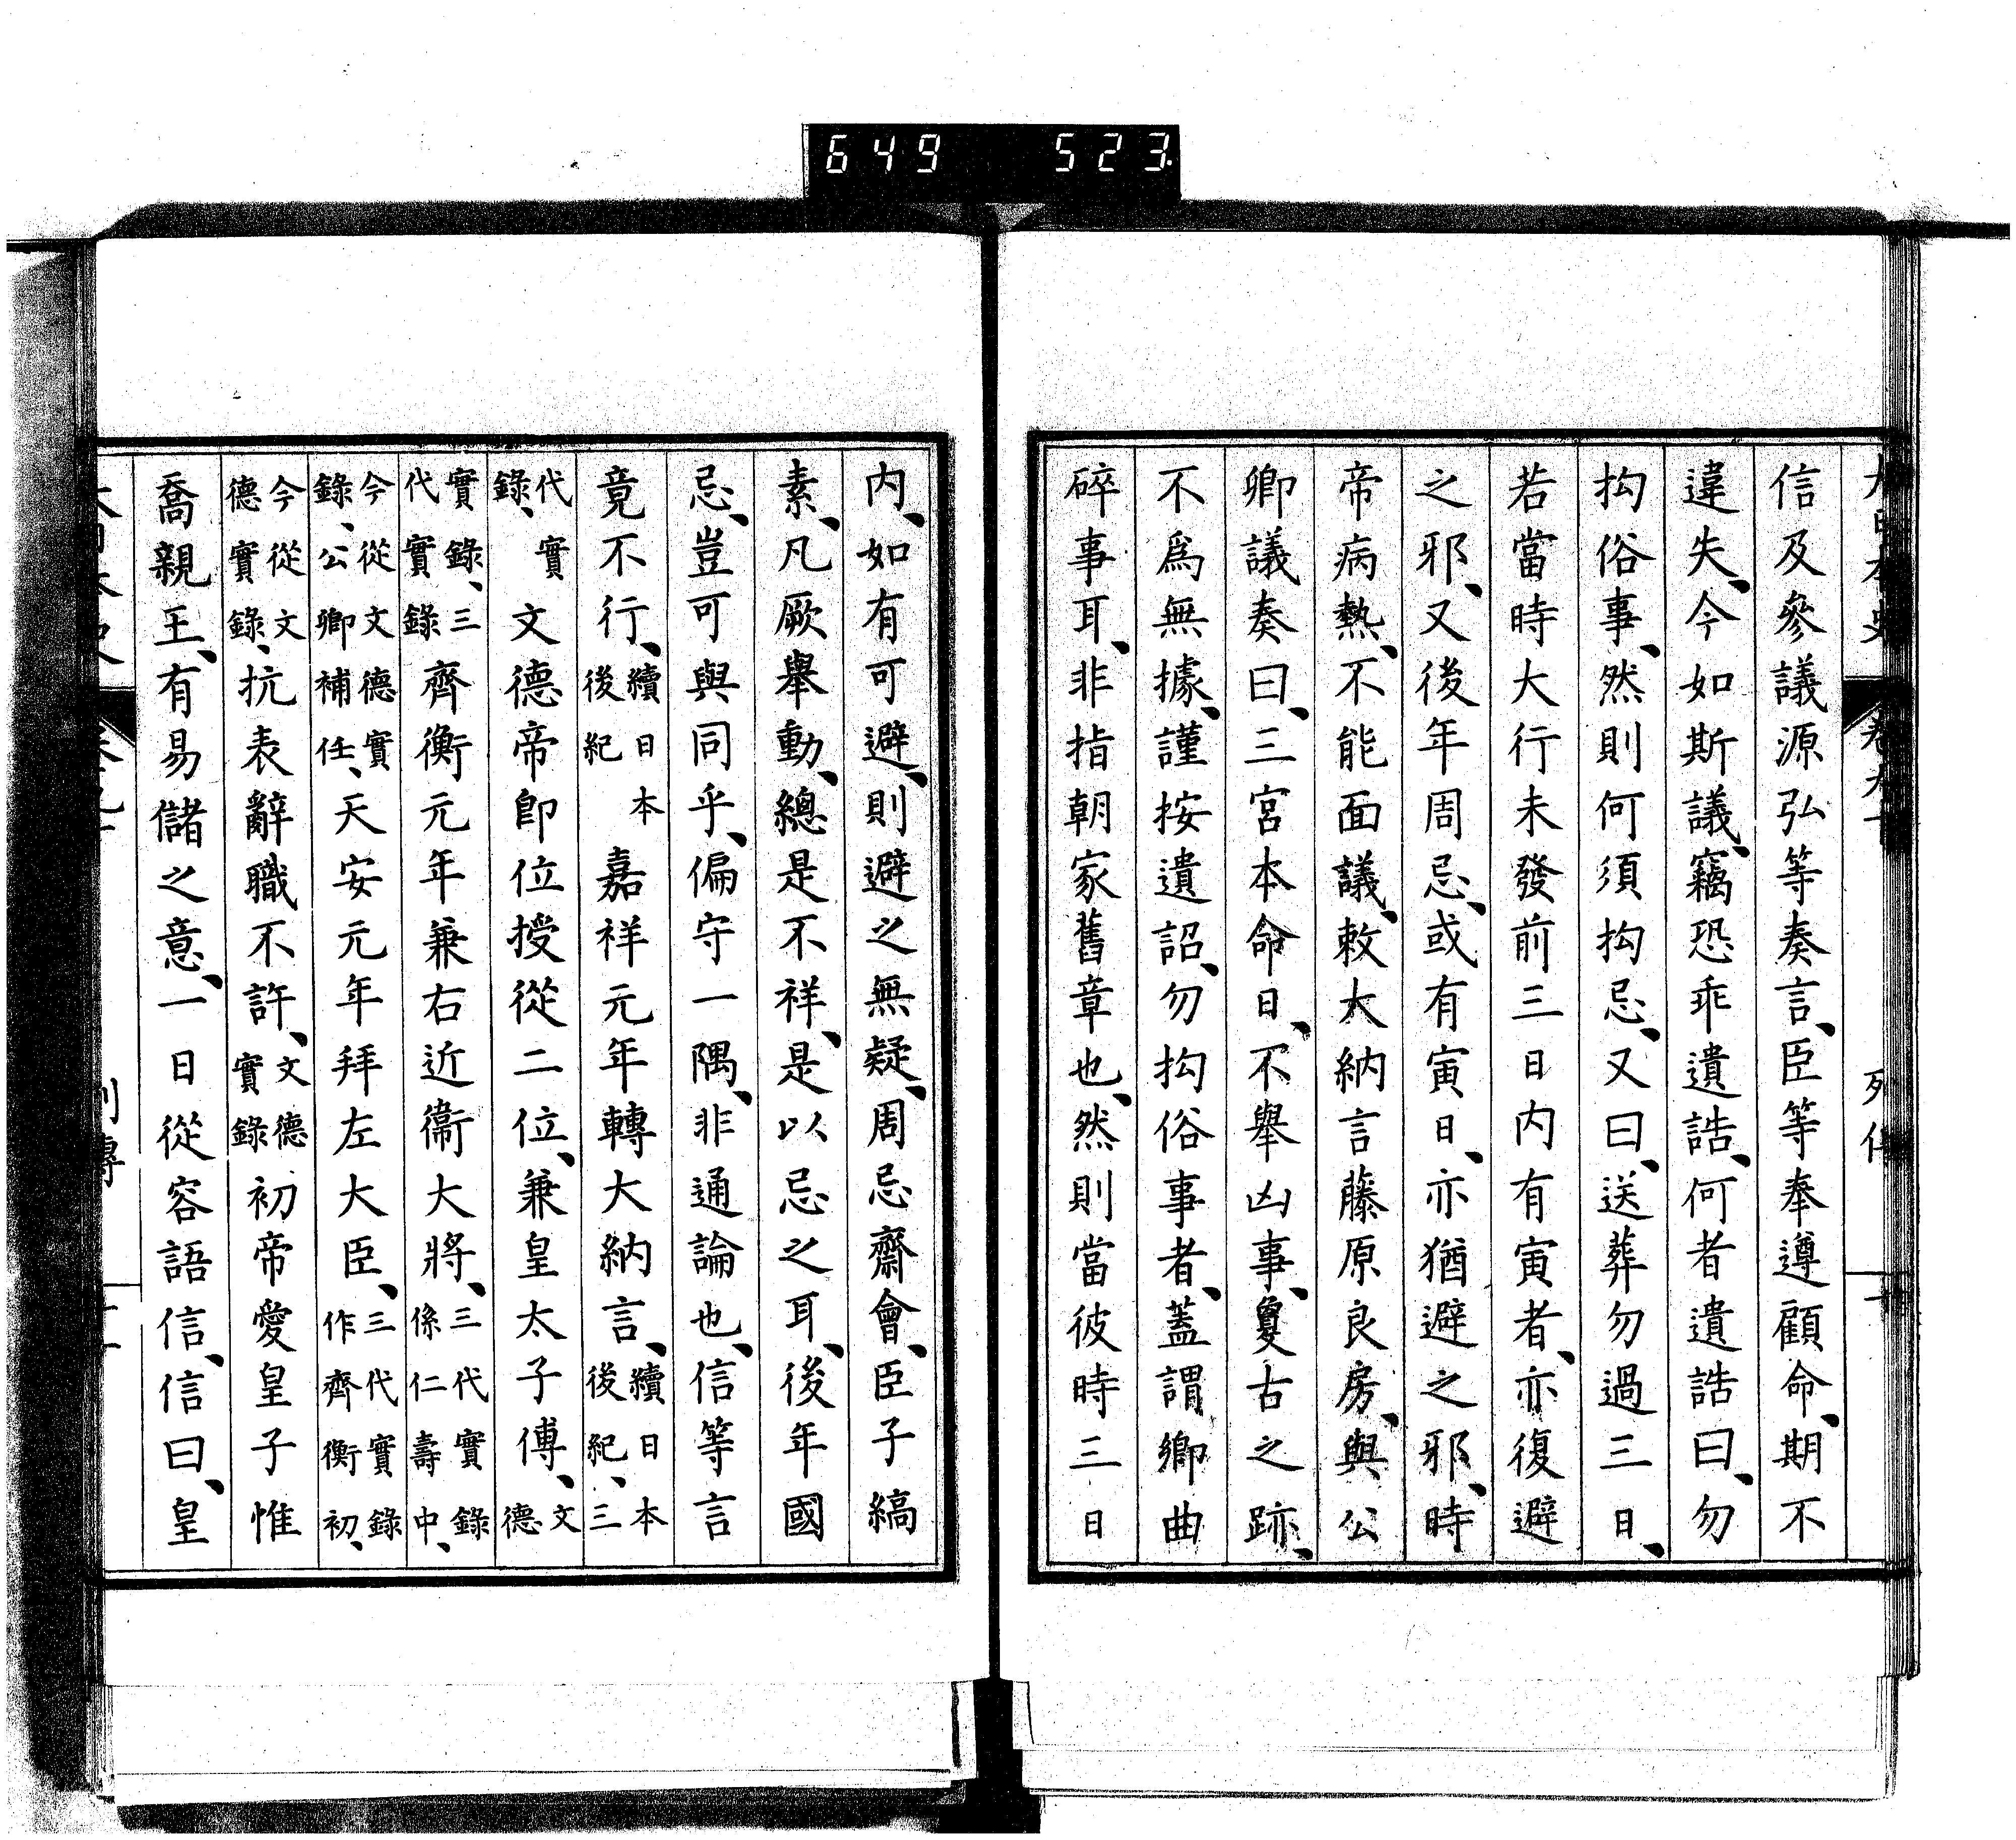 649 523
信及參議源弘等奏言、臣等奉遵顧命、期不
違失、今如斯議、竊恐乖遺誥、何者遺誥曰、勿
拘俗事、然則何須拘忌、又曰、送葬勿過三日、
若當時大行未發前三日内有寅者、亦復避
之邪、又後年周忌、或有寅日、亦猶避之邪、時
帝病熱、不能面議、敕大納言藤原良房、與公
卿議奏曰、三宮本命日、不舉凶事、夐古之跡、
不爲無據、謹按遺詔、勿拘俗事者、蓋謂鄉曲
碎事耳、非指朝家舊章也、然則當彼時三日
内、如有可避、則避之無疑、周忌齋會、臣子縞
素、凡厥舉動、總是不祥、是以忌之耳、後年國
忌、豈可與同乎、偏守一隅、非通論也、信等言
竟不行、續日本後紀嘉祥元年轉大納言、續日本後紀、三
代實錄、文德帝卽位授從二位、兼皇太子傅、文德
實錄、三代實錄齊衡元年兼右近衞大將、三代實錄係仁壽中、
今從文德實錄、公卿補任、天安元年拜左大臣、三代實錄作齊衡初、
今從文德實錄、抗表辭職不許、文德實錄初帝愛皇子惟
喬親王、有易儲之意、一日從容語信、信曰、皇